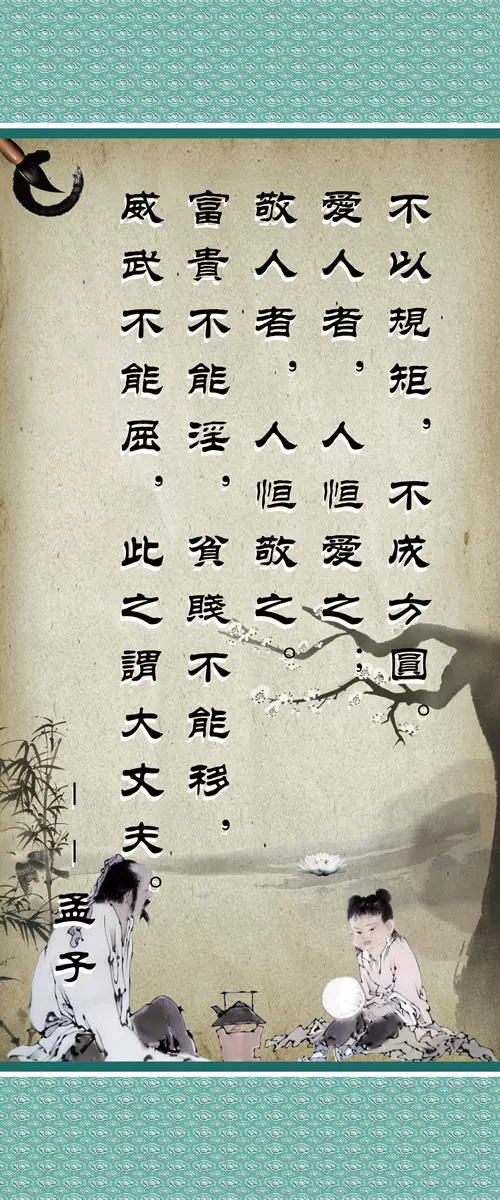 不以規矩，不成方圓。
愛人者，人恒愛之；
敬人者，人恒敬之。
富貴不能淫，貧賤不能移，
威武不能屈，此之謂大丈夫。
——孟子